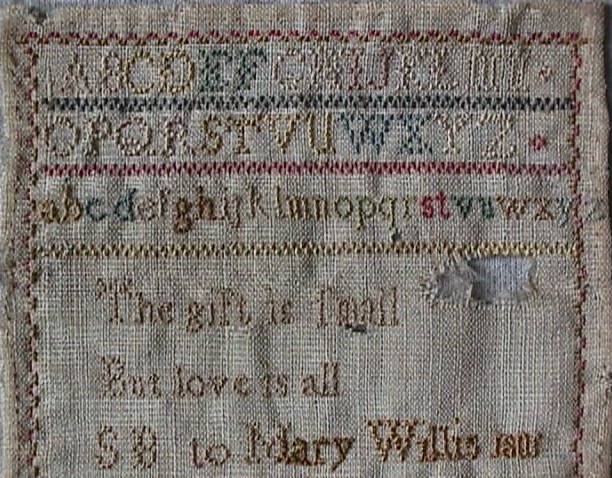 ABCDEFGHIJKLMN
OPQRSTVUWXYZ
abcdefghijklmnopqrstvuwxyz
The gift is ſmall
But love is all
S B to Mary Willis